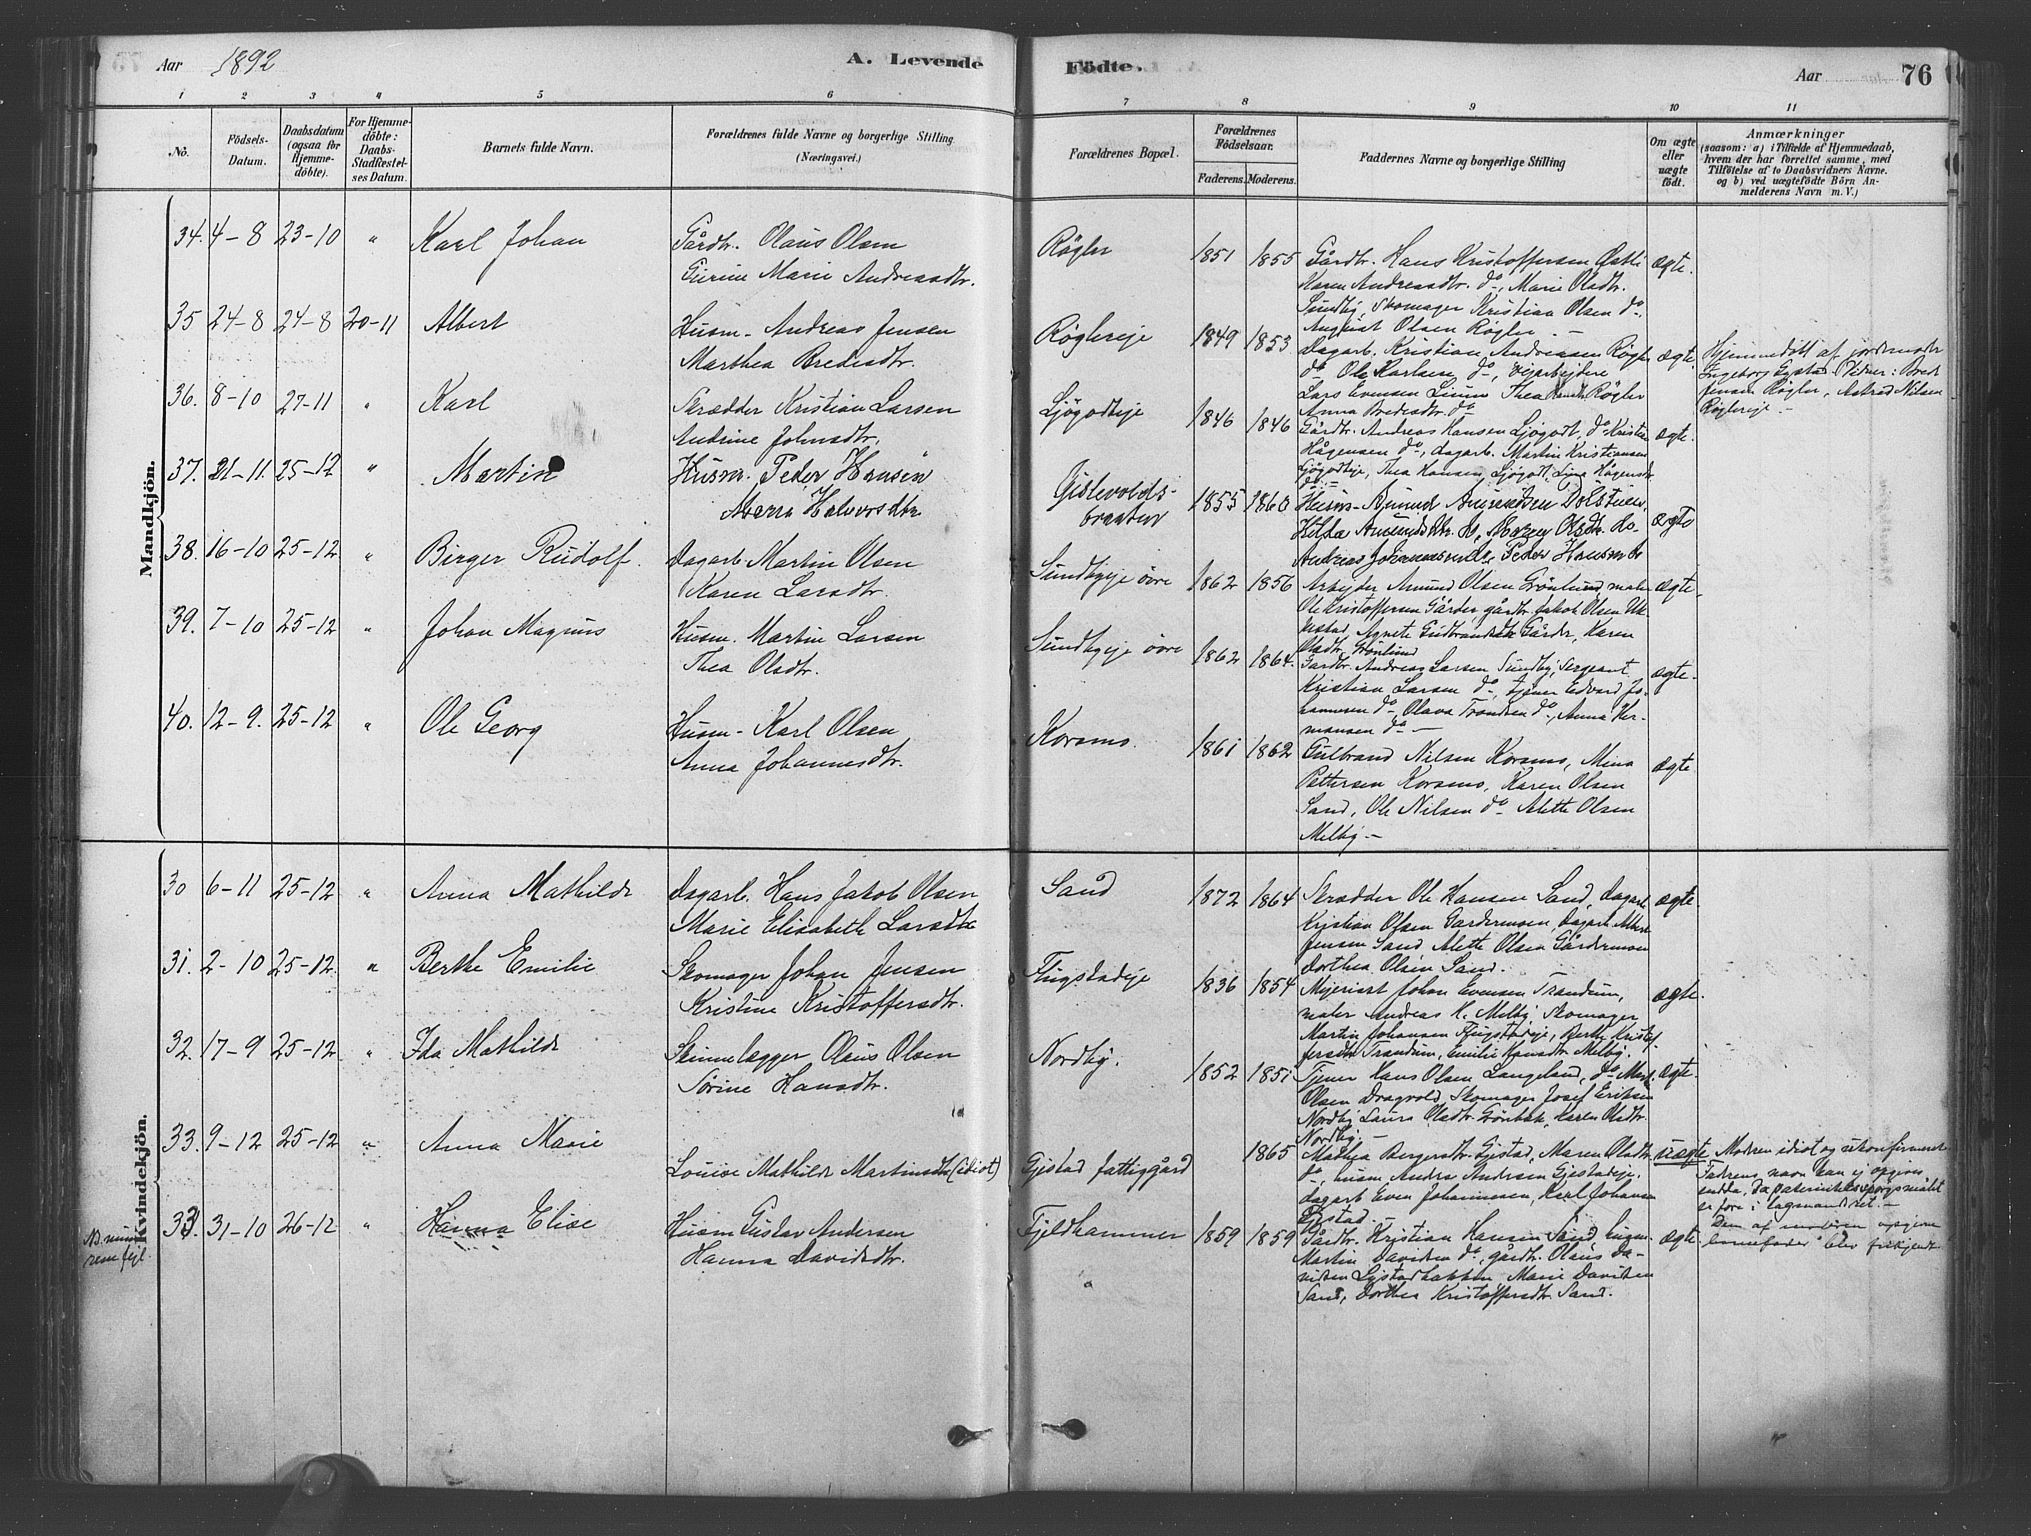 Aar 1892
A. Levende
Födte.
Aar
76
1 2 3 4 5 6 7 8 9 10 11
No.
Födsels-
Datum.
Daabsdatum
(ogsaa för
Hjemme-
döbte).
For Hjemme-
döbte:
Daabs-
Stadfæstel-
ses Datum.
Barnets fulde Navn.
Forældrenes fulde Navne og borgerlige Stilling
(Næringsvei.)
Forældrenes Bopæl.
Forældrenes
Födselsaar.
Faderens. Moderens.
Faddernes Navne og borgerlige Stilling
Om ægte
eller
uægte
födt.
Anmærkninger
(saasom: a) i Tilfælde af Hjemmedaab,
hvem der har forrettet samme, med
Tilföielse af to Daabsvidners Navne.
og b) ved uægtefödte Börn An-
melderens Navn m. V.)
Mandkjön.
34. 4-8 23-10 " Karl Johan
Gårdbr. Olaus Olsen
Marie Andreasdtr.
Røgler 1851 1855
Gårdbr. Hans Kristoffersen
Karen Andreasdtr. do, Marie Olsdtr.
Sundby, Skomager Kristian Olsen do,
August Olsen Røgler. -
ægte.
35 24-8 24-8 20-11 Albert
Husm. Andreas Jensen
Marthea Bredesdtr.
Røglereje 1849 1853
Dagarb. Kristian Andreassen Røgler
do Ole Karlsen do, vejarbejdere
Lars Evensen Thea Røgler
Anna Bredesdtr. do
ægte.
Hjemmedøbt af jordemoder
Ingeborg Gystad Vidner: Bred
Jensen Røgler, Nilsen
Røglereje. -
36. 8-10 27-11 " Karl
Skrædder Kristian Larsen
Andrine Johnsdtr.
Ljøgodteje 1846 1846
Gårdbr. Andreas Hansen Ljøgodt, do Kristian
Hågensen do, dagarb. Martin Kristiansen
Ljøgodteje, Thea Hansen Ljøgodt, Lina Hågensdtr
do -
ægte.
37. 21-11. 25-12 " Martin
Husm. Peder Hansen
Halvorsdtr.
Gislevolds-
braaten 1855 1860
Husm. Amund
Hilda Amundsdtr. do, Olsdtr. do
Andreas do, Peder Hansen do
ægte
38. 16-10 25-12 " Birger Rudolf.
Dagarb. Martin Olsen
Karen Larsdtr.
Sundbyeje øvre 1862 1856
Arbejder Amund Olsen Grønlund, maler
Ole Kristoffersen Gårder gårdbr. Jakob Olsen
Agnete Gudbrandsdtr Gårder, Karen
Olsdtr. Grønlund
ægte.
39. 7-10 25-12 " Johan Magnus
Husm. Martin Larsen
Thea Olsdtr.
Sundbyeje øvre 1862 1864.
Gårdbr. Andreas Larsen Sundby, Sergeant
Kristian Larsen do, tjener Edvard Jo-
hannesen do, Olava Trondsen do, Anna Her-
mansen do -
ægte.
40. 12-9. 25-12 " Ole Georg
Husm. Karl Olsen
Anna Johannesdtr.
Korsmo. 1861 1862
Gulbrand Nilsen Korsmo, Mina
Pettersen Korsmo, Karen Olsen
Sand, Ole Nilsen do Alette Olsen
Melby. -
ægte
Kvindekjön.
30 6-11 25-12 " Anna Mathilde
Dagarb. Hans Jakob Olsen
Marie Elisabeth Larsdtr
Sand 1872 1864
Skrædder Ole Hansen Sand, dagarb
Kristian Olsen Gardermoen, dagarb. Albert
Jensen Sand Alette Olsen Gårdermoen
Dorthea Olsen Sand.
ægte.
31. 2-10 25-12. " Berthe Emilie
Skomager Johan Jensen
Kristine Kristoffersdtr.
Flugstadeje 1836 1854
Mejerist Johan Evensen Trandum,
maler Andreas H. Melby Skomager
Martin Johansen Flugstadeje, Berthe Kristof-
fersdtr Trandum, Emilie Hansdtr. Melby.
ægte.
32. 17-9 25-12 " Ida Mathilde
Steinlægger Olaus Olsen
Sørine Hansdtr.
Nordby. 1852 1851
Tjener Hans Olsen Langeland, do
Olsen Dragvold, Skomager Josef Eriksen
Nordby Laura Olsdtr. Grønbæk, Karen Olsdtr.
Nordby -
ægte.
33. 9-12 25-12 " Anna Marie
Louise Mathilde Martinsdtr (idiot)
Gjestad fattiggård 1865
Mathea Bergersdtr. Gjestad, Maren Olsdtr
do, husm Andrea Andersen Gjestadeje,
dagarb. Even Johannessen, Karl Johansen
Gjestad. -
uægte
Modren idiot og ukonfirmeret
Fadrens navn kan ej opgives
endda, da paternitetsspørgsmålet
er føre i lagmandsret. -
Den af modren opgivne
barnefader blev frikjendt
33. 31-10 26-12 " Hanna Elise
Husm Gustav Andersen
Hanna Davidsdtr.
Fjeldhammer 1859 1859
Gårdbr. Kristian Hansen Sand,
Martin Davidsen do, gårdbr. Olaus Da-
vidsen Gjestadbakken Marie Davidsen
Sand, Dorthea Kristoffersdtr. Sand.
ægte
"
Nb. num-
rene fejl.